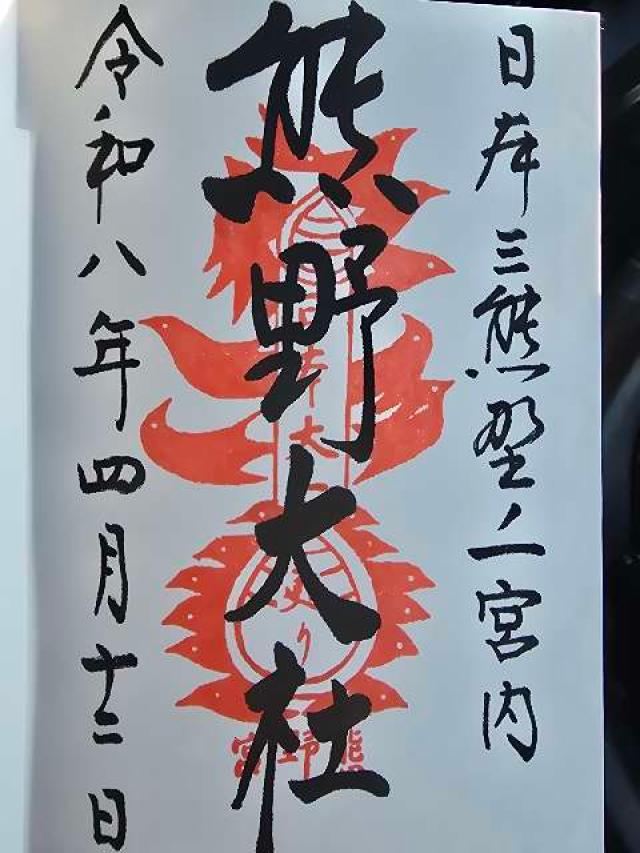 日本三熊野ノ一宮内
熊野大社
令和八年四月十二日